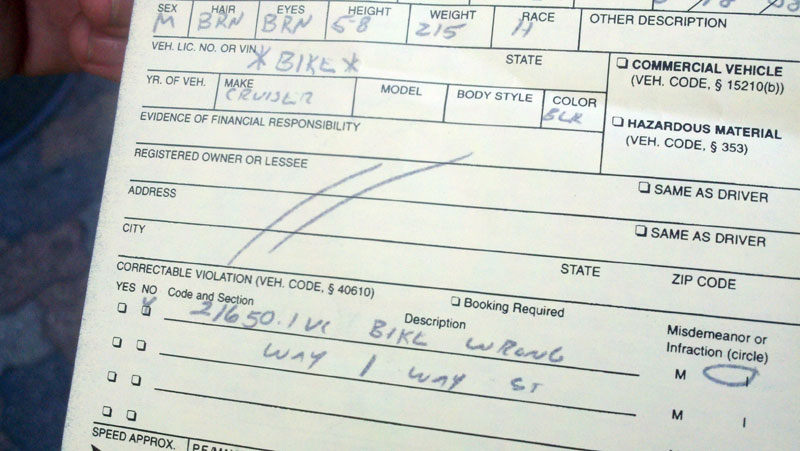 SEX HAIR EYES HEIGHT WEIGHT RACE OTHER DESCRIPTION
M BRN BRN 5-8 215 H
VEH. LIC. NO. OR VIN STATE
*BIKE*
COMMERCIAL VEHICLE
(VEH. CODE, § 15210(b))
YR. OF VEH. MAKE MODEL BODY STYLE COLOR
CRUISER BLK
HAZARDOUS MATERIAL
(VEH. CODE, § 353)
EVIDENCE OF FINANCIAL RESPONSIBILITY
REGISTERED OWNER OR LESSEE
SAME AS DRIVER
ADDRESS
SAME AS DRIVER
CITY STATE ZIP CODE
CORRECTABLE VIOLATION (VEH. CODE, § 40610) Booking Required
YES NO Code and Section Description Misdemeanor or
Infraction (circle)
21650.1 VC BIKE WRONG M I
WAY 1 WAY ST M I
SPEED APPROX.